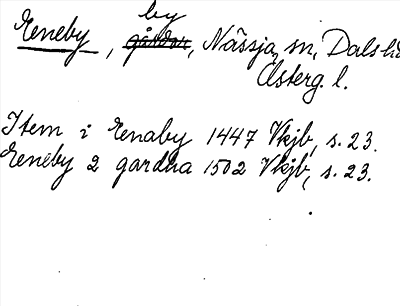 by
Eneby, gårdar, Nässja sn, Dals hd
Österg. l.
Item i Enaby 1447 Vkjb, s. 23.
Eneby 2 gardha 1502 Vkjb, s. 23.